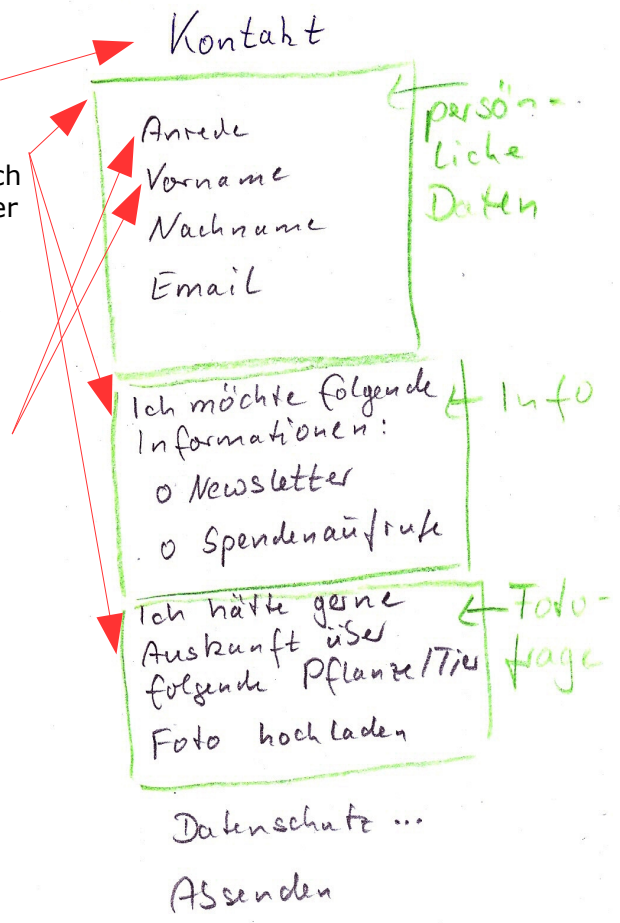 Kontakt
Anrede
Vorname
Nachname
Email
persön-
liche
Daten
ch
er
Ich möchte folgende
Informationen:
o Newsletter
o Spendenaufrufe
Info
Ich hätte gerne
Auskunft über
folgende Pflanze/Tier
Foto hochladen
Foto-
frage
Datenschutz ...
Absenden